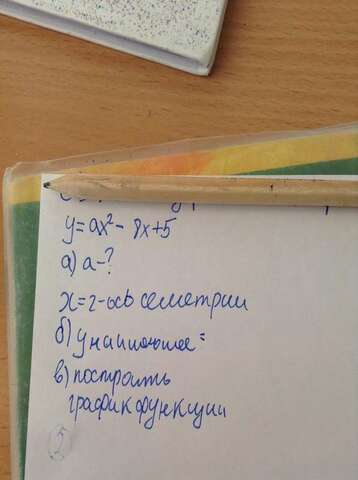 y=ax²-8x+5
а) a-?
x=2-ось семетрии
б) y наименьшее=
в) построить
график функции
5